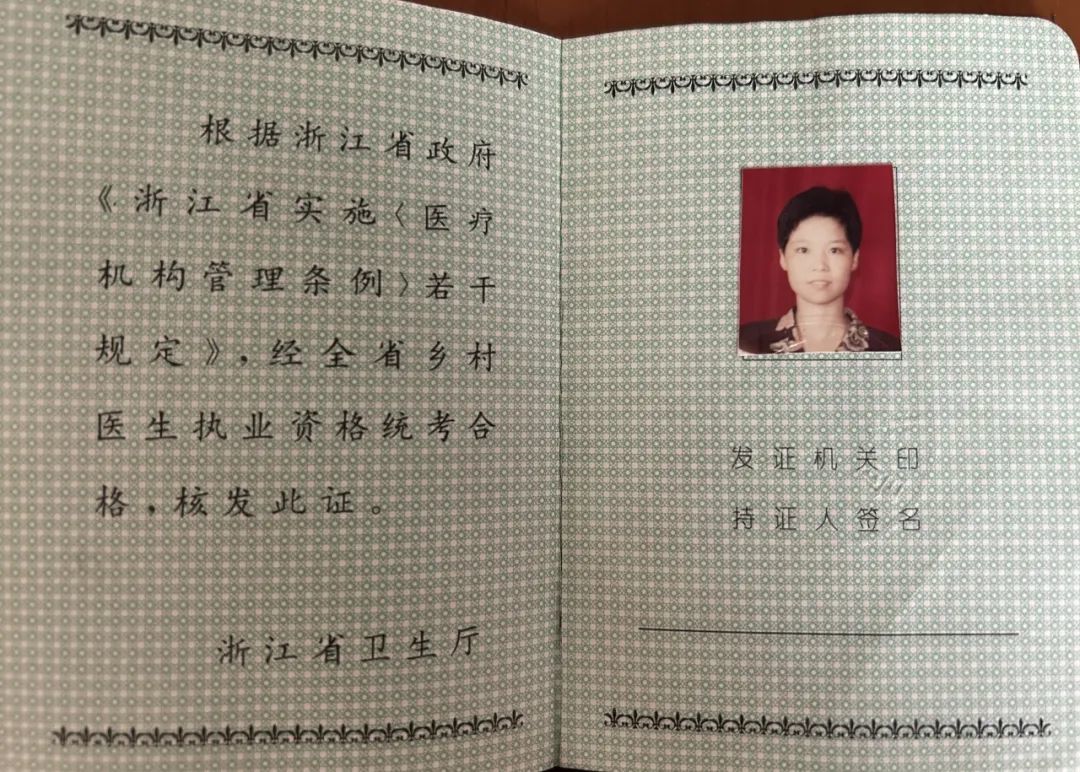 根据浙江省政府
《浙江省实施〈医疗
机构管理条例〉若干
规定》，经全省乡村
医生执业资格统考合
格，核发此证。
浙江省卫生厅
发证机关印
持证人签名